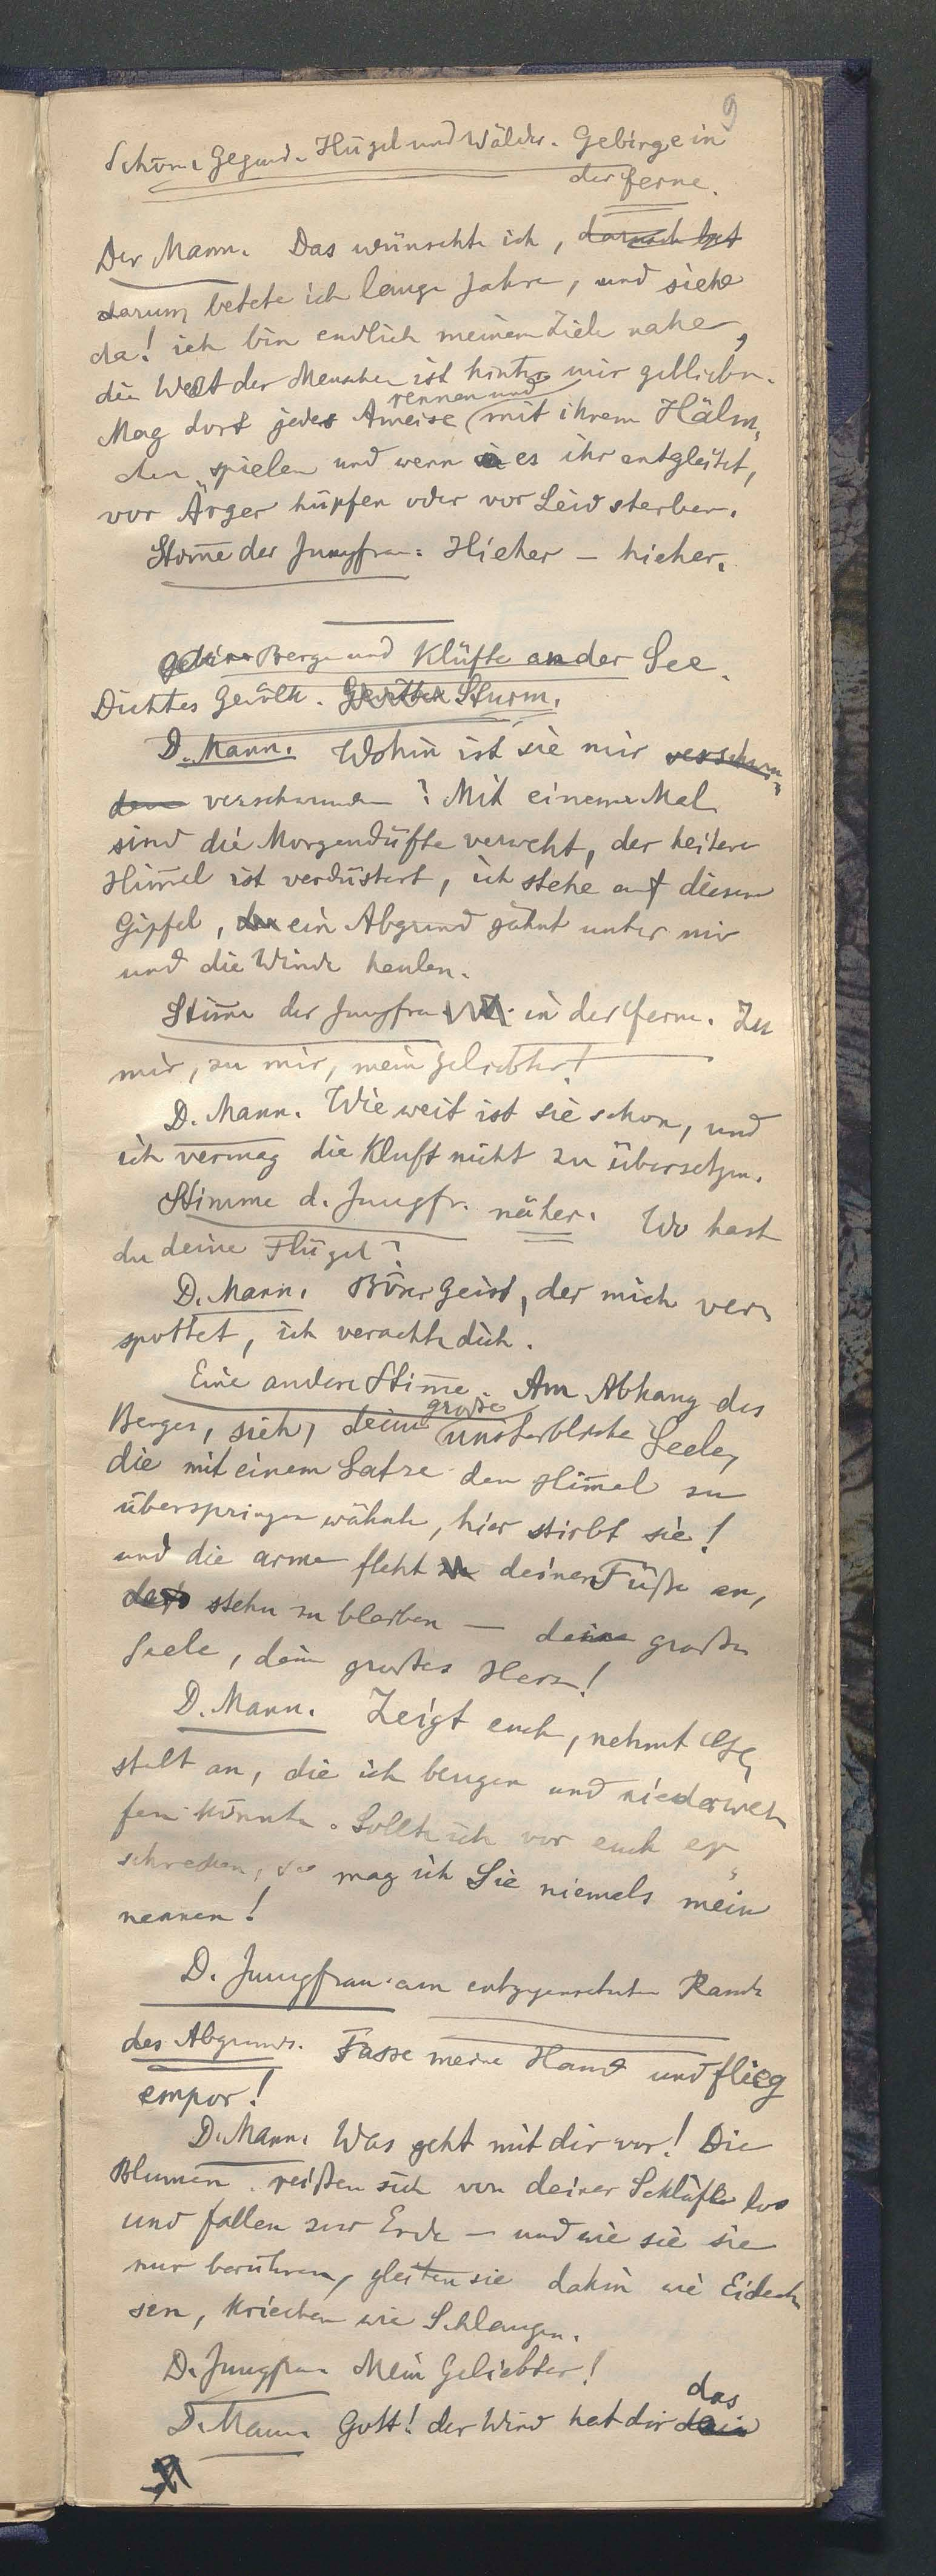 9
Schöne Gegend. Hügel und Wälder. Gebirge in
der Ferne.
Der Mann. Das wünschte ich, darnach
darum betete ich lange Jahre, und siehe
da! ich bin endlich meinem Ziele nahe,
die Welt der Menschen ist hinter mir geblieben.
rennen und
Mag dort jede Ameise mit ihrem Hälm,
chen spielen und wenn es ihr entgleitet,
vor Ärger hüpfen oder vor Leid sterben.
Stim̄e der Jungfrau: Hieher – hieher.
Berge und Klüfte an der See.
Dichtes Gewölk. Gewitter Sturm.
D. Mann. Wohin ist sie mir verschwun,
den verschwunden? Mit einem Mal
sind die Morgendüfte verweht, der heitere
Him̄el ist verdüstert, ich stehe auf diesem
Gipfel, ein Abgrund gähnt unter mir
und die Winde heulen.
Stim̄e der Jungfrau in der Ferne. Zu
mir, zu mir, mein Geliebter!
D. Mann. Wie weit ist sie schon, und
ich vermag die Kluft nicht zu übersetzen.
Stimme d. Jungfr. näher. Wo hast
du deine Flügel?
D. Mann. Böser Geist, der mich ver,
spottet, ich verachte dich.
Eine andere Stim̄e. Am Abhang des
große
Berges, sieh, deine unsterbliche Seele,
die mit einem Satze den Him̄el zu
überspringen wähnte, hier stirbt sie!
und die arme fleht zu deinen Füße an,
daß stehn zu bleiben – deine große
Seele, dein großes Herz!
D. Mann. Zeigt euch, nehmt Ge,
stalt an, die ich beugen und niederwer,
fen könnte. Sollte ich vor euch er,
schrecken, so mag ich Sie niemals mein
nennen!
D. Jungfrau am entgegengesetzten Rande
des Abgrunds. Fasse meine Hand und flieg
empor!
D. Mann. Was geht mit dir vor! Die
Blumen reißen sich von deiner Schläfe los
und fallen zur Erde – und wie sie sie
nur berühren, gleiten sie dahin wie Eidech,
sen, kriechen wie Schlangen.
D. Jungfrau Mein Geliebter!
das
D. Mann Gott! der Wind hat dir dein